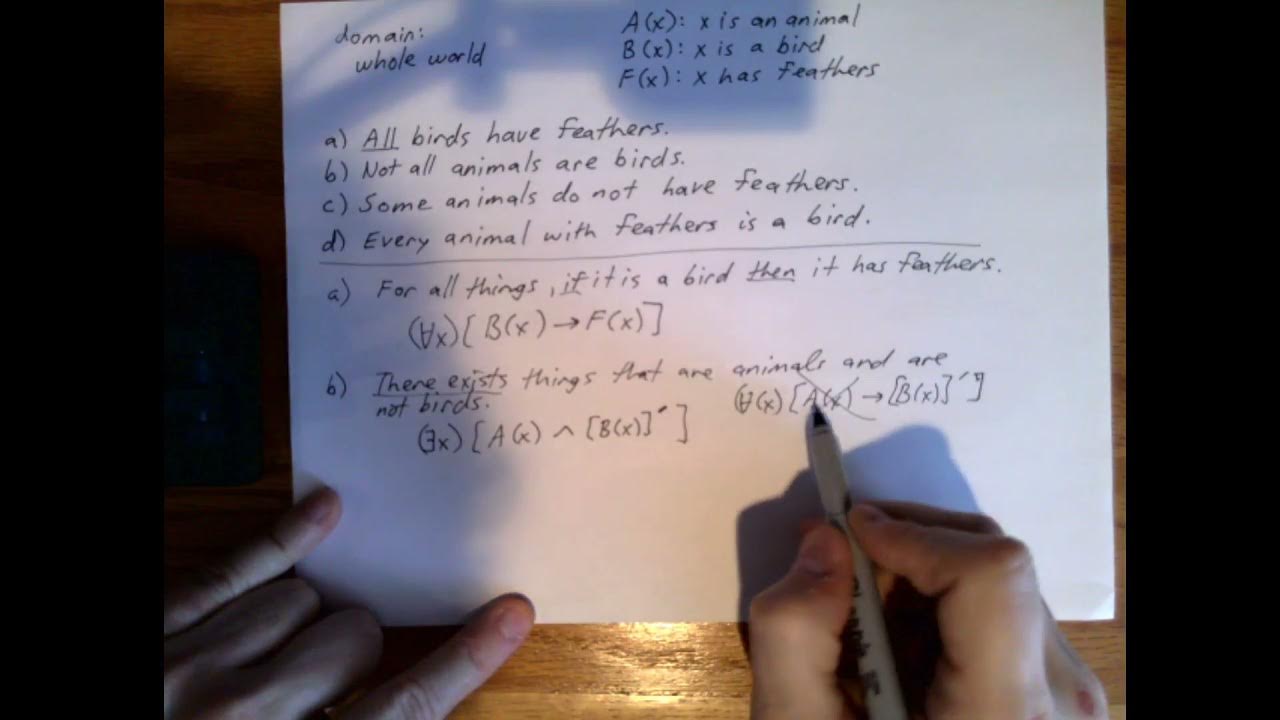 domain:
whole world
A(x): x is an animal
B(x): x is a bird
F(x): x has feathers
a) All birds have feathers.
b) Not all animals are birds.
c) Some animals do not have feathers.
d) Every animal with feathers is a bird.
a) For all things, if it is a bird then it has feathers.
(∀x)[B(x) → F(x)]
b) There exists things that are animals and are
not birds.
(∀(x)[A(x) → [B(x)]′]
(∃x)[A(x) ∧ [B(x)]′]